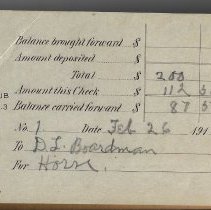 Balance brought forward $
Amount deposited $
Total $ 200
UB Amount this Check $ 112 5
3 Balance carried forward $ 87 5
No. 1 Date Feb 26 191
To D. L. Boardman
For Horse.